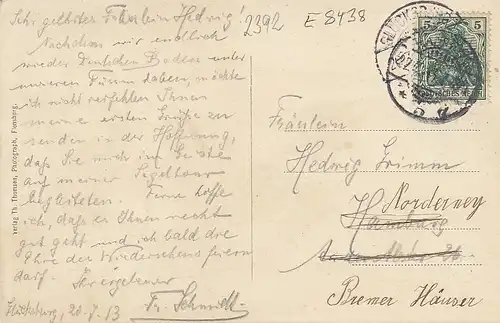 Sehr geehrtes Fräulein Hedwig!
Nachdem wir endlich
wieder Deutschen Boden unter
unseren Füssen haben, möchte
ich nicht verfehlen Ihnen
meine ersten Grüße zu
senden in der Hoffnung,
daß Sie mich im Geiste
auf meiner Segeltour
begleiteten. Ferne hoffe
ich, daß es Ihnen recht
gut geht und ich bald die
des Wiedersehens feiern
darf. Ihr ergebener
Fr. Schmidt.
Glücksburg, 20.7.13
2392
E 8438
5 5
Fräulein
Hedwig Grimm
Norderney
Hamburg
Bremer Häuser
Verlag Th. Thomsen, Photograph, Flensburg.